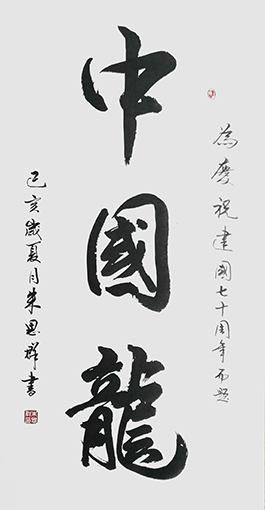 為慶祝建國七十周年而題
中國龍
己亥歲夏月朱思群書